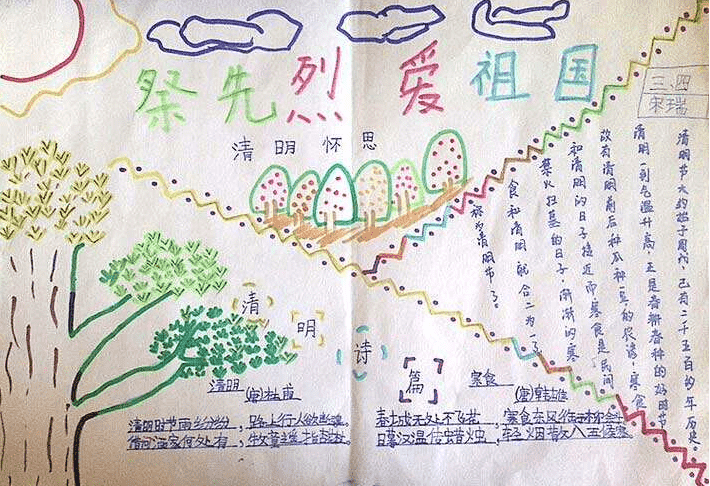 祭先烈 爱祖国
清明怀思
三.四
宋瑞
清明节大约始于周代，已有二千五百的年历史。
清明一到气温升高，正是春耕春种的好时节
故有清明前后种瓜种豆的农谚，寒食
和清明的日子接近而寒食是民间
禁火扫墓的日子，渐渐的寒
食和清明就合二为一了
称为清明节了。
清明诗篇
清明 (唐)杜甫
清明时节雨纷纷，路上行人欲断魂。
借问酒家何处有，牧童遥指
寒食 (唐)韩
春城无处不飞花，寒食东风
日暮汉温传蜡烛，轻烟散入五侯家